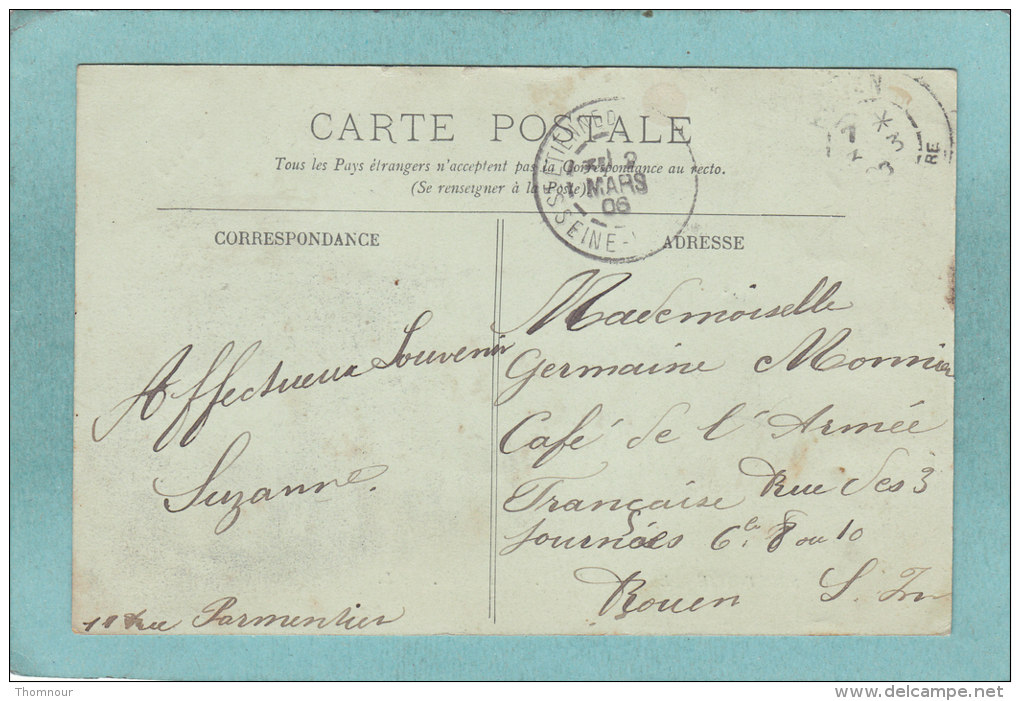 CARTE POSTALE
Tous les Pays étrangers n'acceptent pas la Correspondance au recto.
(Se renseigner à la Poste)
ST ETIENNE D
2
MARS
06
SEINE-
7
3
RE
CORRESPONDANCE
ADRESSE
Affectueux Souvenir
Suzanne.
Rue Parmentier
Mademoiselle
Germaine Monnier
Café de l'Armée
Française Rue des 3
Journées 8 ou 10
Rouen S. In
Thomnour
www.delcampe.net